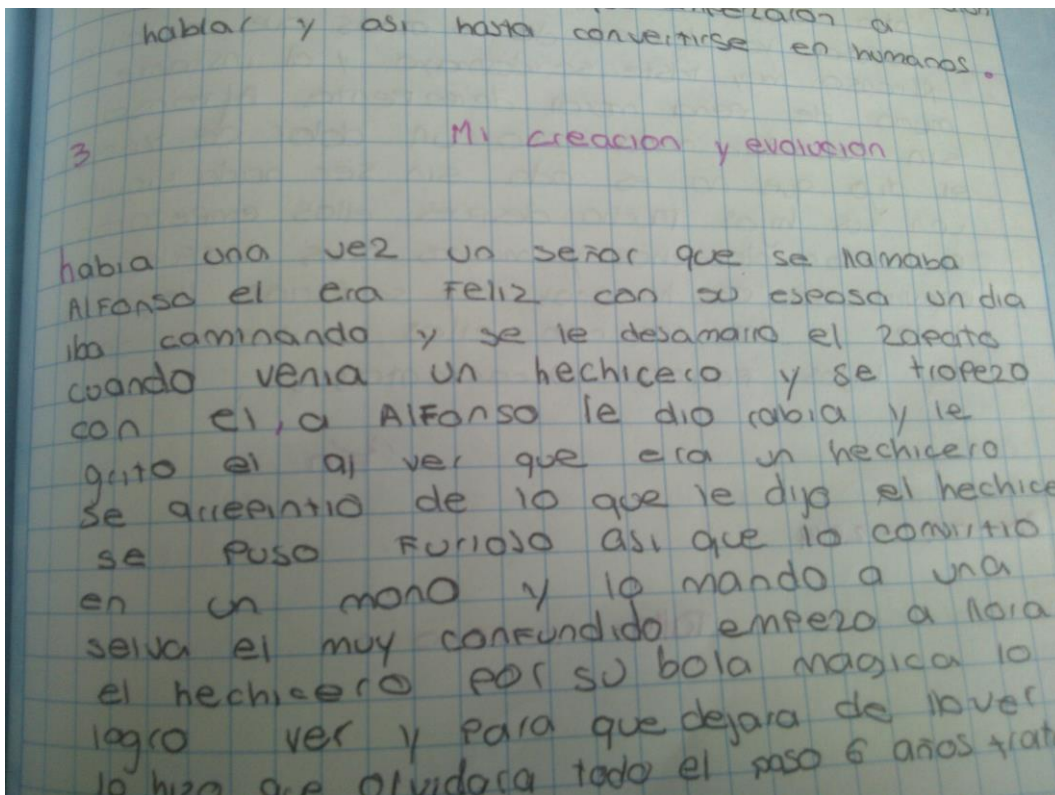 a
hablar y asi hasta convertirse en humanos.
3 Mi creacion y evolucion
habia una vez un señor que se llamaba
Alfonso el era feliz con su esposa un dia
iba caminando y se le desamarro el zapato
cuando venia un hechicero y se tropezo
con el, a Alfonso le dio rabia y le
grito el al ver que era un hechicero
se arrepintio de lo que le dijo el hechice
se puso furioso asi que lo convirtio
en un mono y lo mando a una
selva el muy confundido empezo a llora
el hechicero por su bola magica lo
logro ver y para que dejara de llover
lo hizo que olvidara todo el paso 6 años trat